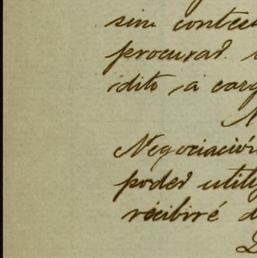 sin
procurad
dito a carg
N
Negociación
poder utili
recibiré d